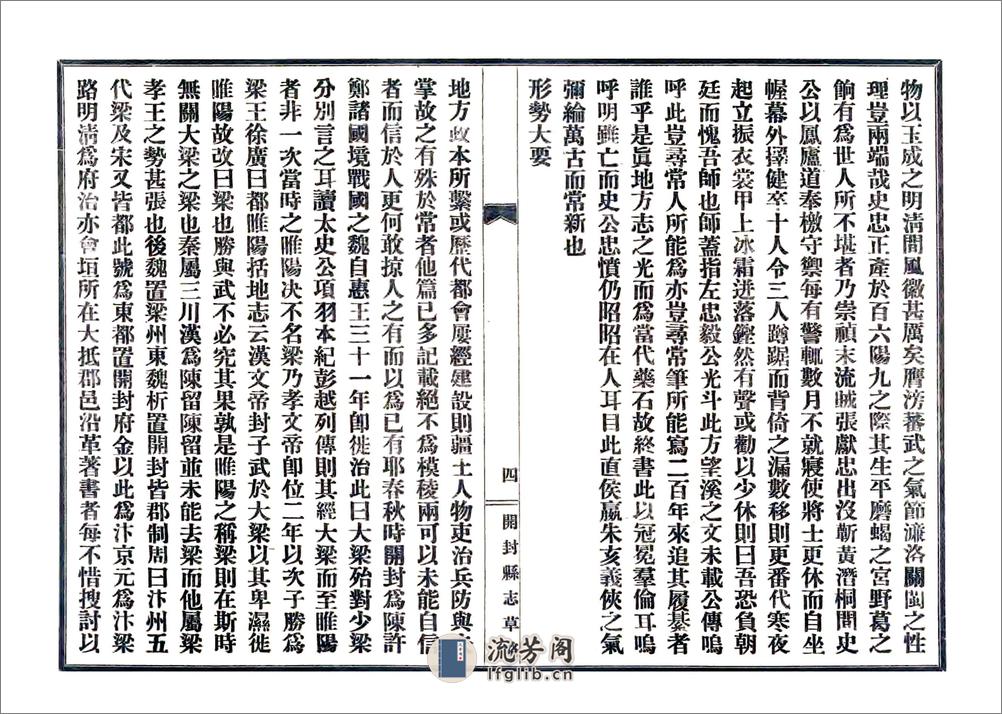 物以玉成之明清間風徽甚厲矣膺滂蕃武之氣節濂洛關閩之性
理豈兩端哉史忠正產於百六陽九之際其生平磨蝎之宮野葛之
餉有爲世人所不堪者乃崇禎末流賊張獻忠出沒蘄黃潛桐間史
公以鳳廬道奉檄守禦每有警輒數月不就寢使將士更休而自坐
幄幕外擇健卒十人令三人蹲踞而背倚之漏數移則更番代寒夜
起立振衣裳甲上冰霜迸落鏗然有聲或勸以少休則曰吾恐負朝
廷而愧吾師也師蓋指左忠毅公光斗此方望溪之文未載公傳嗚
呼此豈尋常人所能爲亦豈尋常筆所能寫二百年來追其履綦者
誰乎是眞地方志之光而爲當代藥石故終書此以冠冕羣倫耳嗚
呼明雖亡而史公忠憤仍昭昭在人耳目此直侯嬴朱亥義俠之氣
彌綸萬古而常新也
形勢大要
四
開封縣志草
地方政本所繫或歷代都會屢經建設則疆土人物吏治兵防與
掌故之有殊於常者他篇已多記載絕不爲模稜兩可以未能自信
者而信於人更何敢掠人之有而以爲已有耶春秋時開封爲陳許
鄭諸國境戰國之魏自惠王三十一年卽徙治此曰大梁殆對少梁
分別言之耳讀太史公項羽本紀彭越列傳則其經大梁而至睢陽
者非一次當時之睢陽決不名梁乃孝文帝卽位二年以次子勝爲
梁王徐廣曰都睢陽括地志云漢文帝封子武於大梁以其卑濕徙
睢陽故改曰梁也勝與武不必究其果孰是睢陽之稱梁則在斯時
無關大梁之梁也秦屬三川漢爲陳留陳留並未能去梁而他屬梁
孝王之勢甚張也後魏置梁州東魏析置開封皆郡制周曰汴州五
代梁及宋又皆都此號爲東都置開封府金以此爲汴京元爲汴梁
路明淸爲府治亦會垣所在大抵郡邑沿革著書者每不惜搜討以
流芳阁
lfglib.cn